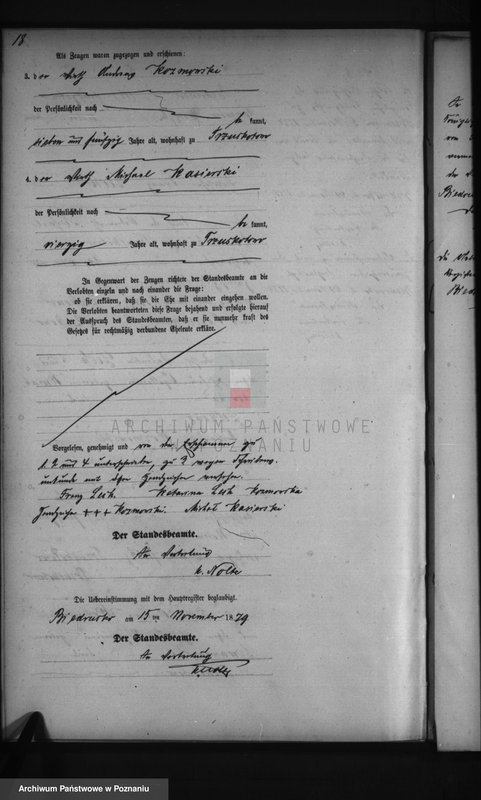 18
Als Zeugen waren zugezogen und erschienen:
3. der Wirth Andreas Kozmowski
der Persönlichkeit nach
be kannt,
sieben und fünfzig Jahre alt, wohnhaft zu Trzuskotowo
4. der Wirth Michael Kasierski
der Persönlichkeit nach
be kannt,
vierzig Jahre alt, wohnhaft zu Trzuskotowo
In Gegenwart der Zeugen richtete der Standesbeamte an die
Verlobten einzeln und nach einander die Frage:
ob sie erklären, daß sie die Ehe mit einander eingehen wollen.
Die Verlobten beantworteten diese Frage bejahend und erfolgte hierauf
der Ausspruch des Standesbeamten, daß er sie nunmehr kraft des
Gesetzes für rechtmäßig verbundene Eheleute erkläre.
ARCHIWUM PAŃSTWOWE
W POZNANIU
Vorgelesen, genehmigt und von den Erschienenen zu
1, 2 und 4 unterschrieben, zu 3 wegen Schreibens-
unkunde mit dem Handzeichen versehen.
Franz Lesk. Katarina Lesk Kozmowska
Handzeichen +++ Kozmowski. Michał Kasierski
Der Standesbeamte.
In Vertretung
K. Nolte
Die Uebereinstimmung mit dem Hauptregister beglaubigt.
Biedrusko am 15 ten November 1879
Der Standesbeamte.
In Vertretung
K. Nolte
Archiwum Państwowe w Poznaniu